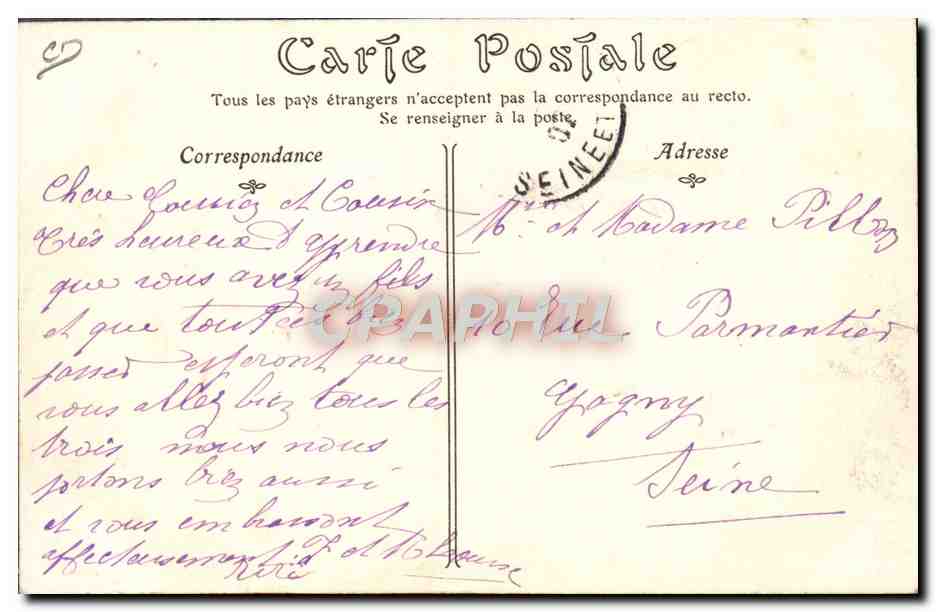 CD
Carte Postale
Tous les pays étrangers n'acceptent pas la correspondance au recto.
Se renseigner à la poste.
Correspondance
Adresse
SEINE ET
Chere Cousine et Cousin
très heureux d'apprendre
que vous avez un fils
et que tout c'est bien
passer esperont que
vous allez bien tous les
trois nous nous
portons bien aussi
et vous embrassont
affectueusement F et M Louise
M. et Madame
10 Rue Parmantier
Gagny
Seine
CPAPHIL